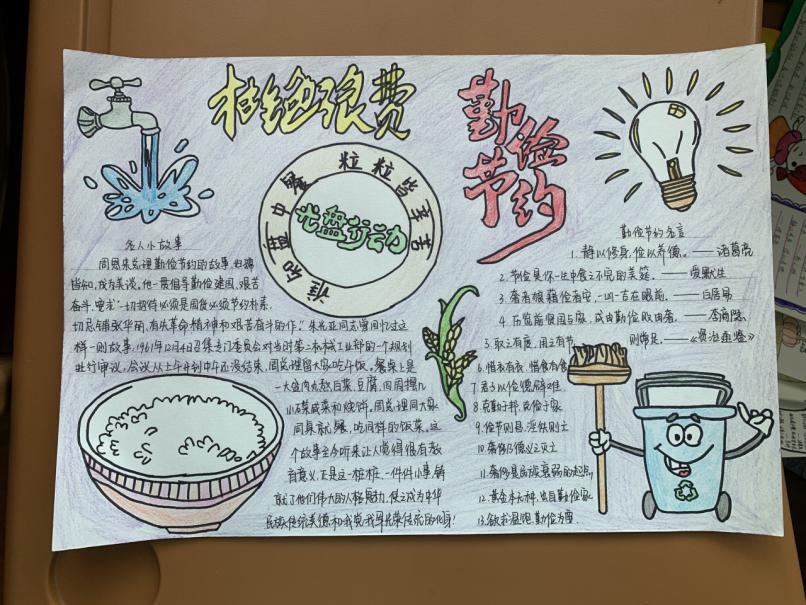 拒绝浪费
勤俭
节约
谁知盘中餐 粒粒皆辛苦
光盘行动
名人小故事
周恩来总理勤俭节约的故事,
皆知,成为美谈,他一贯倡导勤俭建国,艰苦
奋斗,要求"一切招待必须是国货,必须节约朴素,
切忌铺张华丽,有失革命精神和艰苦奋斗的作"。朱光亚同志曾回忆过这
样一则故事,1961年12月4日召集专门委员会对当时第二机械工业部的一个规划
进行审议,会议从上午开到中午还没结束,周总理留大家吃午饭。餐桌上是
一大盆肉丸熬白菜、豆腐,四周摆几
小碟咸菜和烧饼。周总理同大家
同桌就餐,吃同样的饭菜。这
个故事至今听来让人觉得很有教
育意义,正是这一桩桩、一件件小事,铸
就了他们伟大的人格魅力,使之成为中华
民族传统美德和我党我军光荣传统的化身!
勤俭节约名言
1. 静以修身,俭以养德。——诸葛亮
2. 节俭是你一生中食之不完的美筵。——爱默生
3. 奢者狼藉俭者安,一凶一吉在眼前。——白居易
4. 历览前贤国与家,成由勤俭败由奢。——李商隐
5. 取之有度,用之有节, 则常足。——《资治通鉴》
6. 惜衣有衣,惜食有食
7. 君子以俭德辟难
8. 克勤于邦,克俭于家
9. 俭节则昌,淫佚则亡
10. 奢侈 之灭亡
11. 奢侈是民族衰弱的起点
12. 黄金本无种,出自勤俭家
13. 欲求温饱,勤俭为要